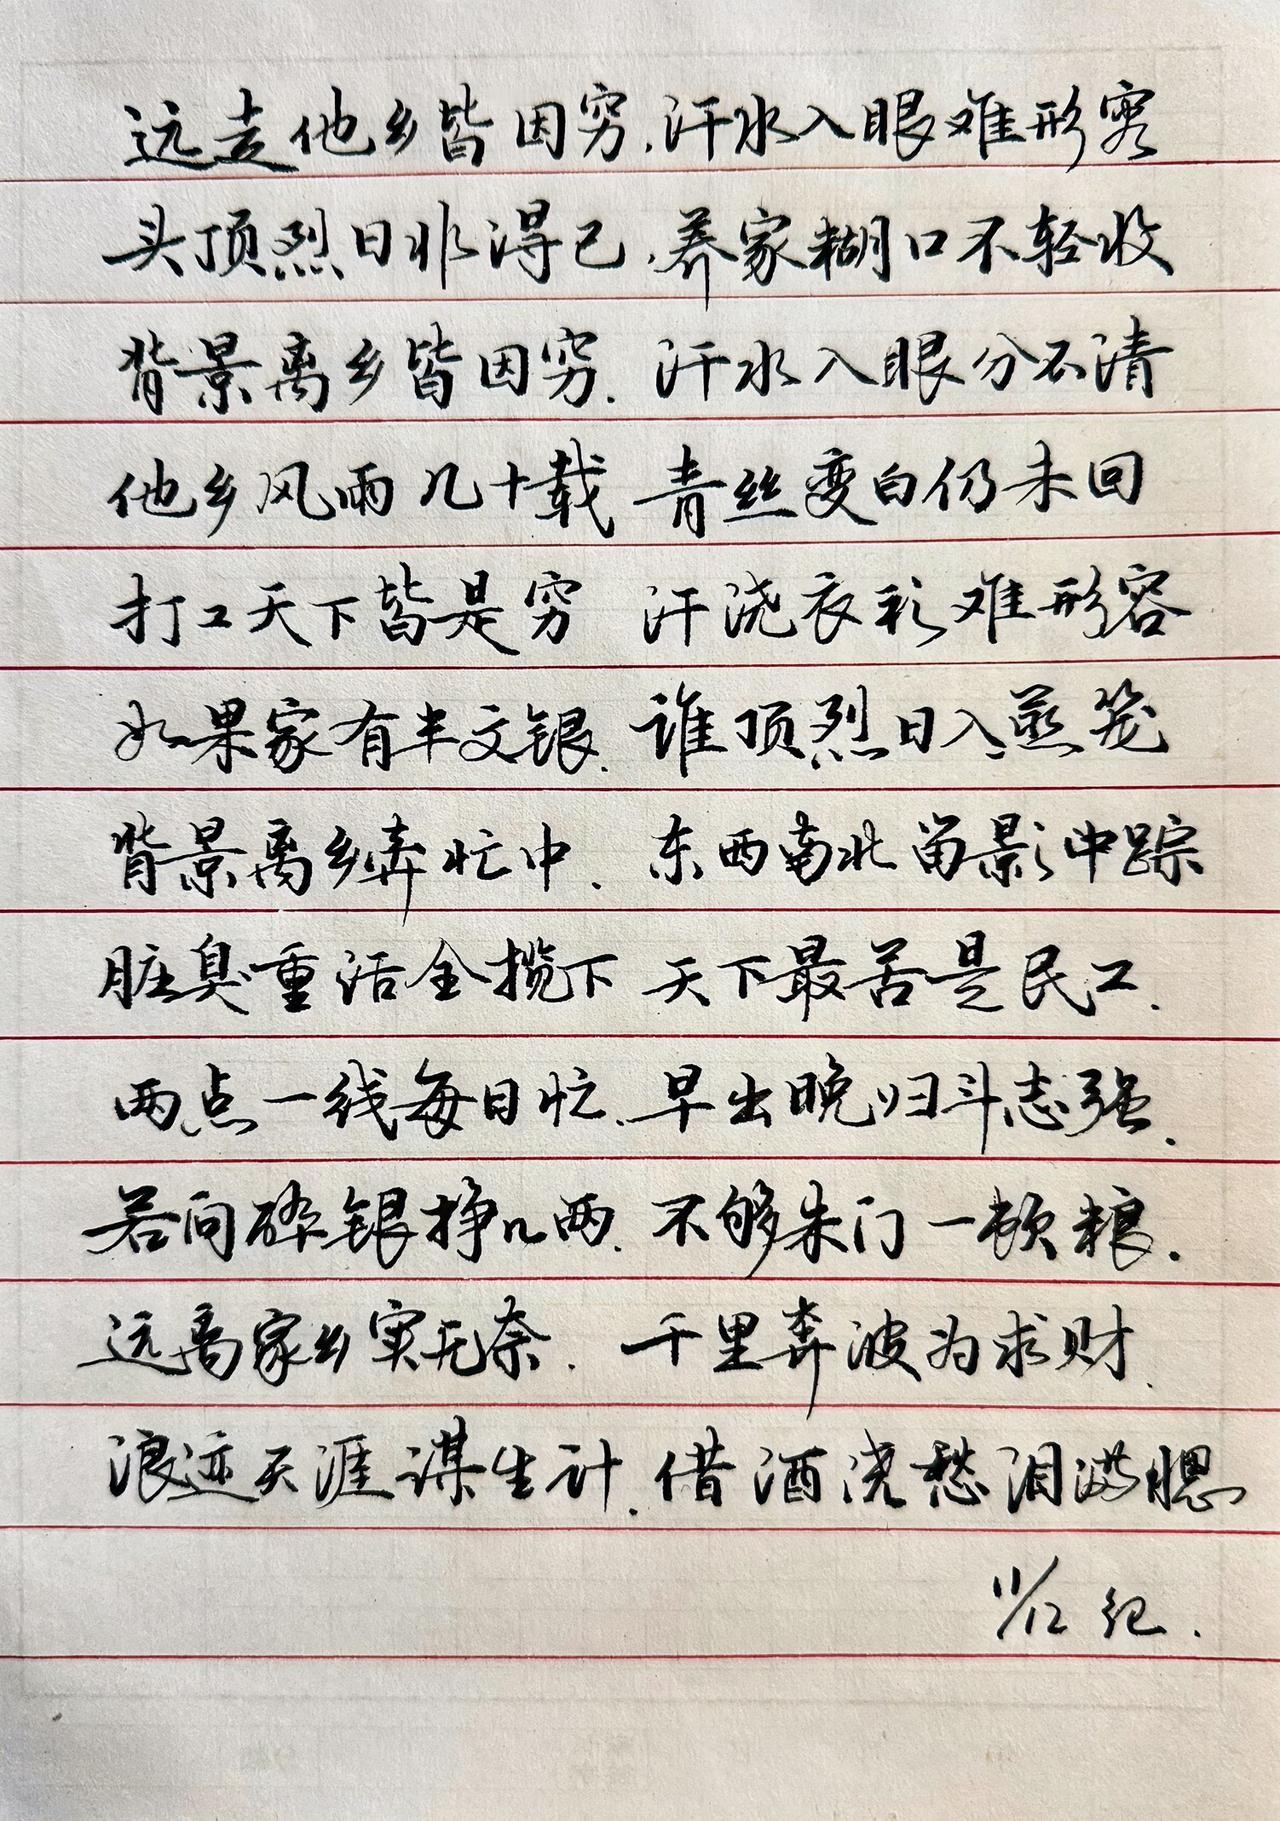 远走他乡皆因穷,汗水入眼难形容
头顶烈日非得已,养家糊口不轻收
背景离乡皆因穷.汗水入眼分不清
他乡风雨几十载 青丝变白仍未回
打工天下皆是穷 汗浇衣衫难形容
如果家有半文银.谁顶烈日入蒸笼
背景离乡奔忙中.东西南北留影中踪
脏臭重活全揽下 天下最苦是民工.
两点一线每日忙.早出晚归斗志强.
若问碎银挣几两.不够朱门一顿粮.
远离家乡实无奈.千里奔波为求财.
浪迹天涯谋生计.借酒浇愁泪满腮
11/12 纪.